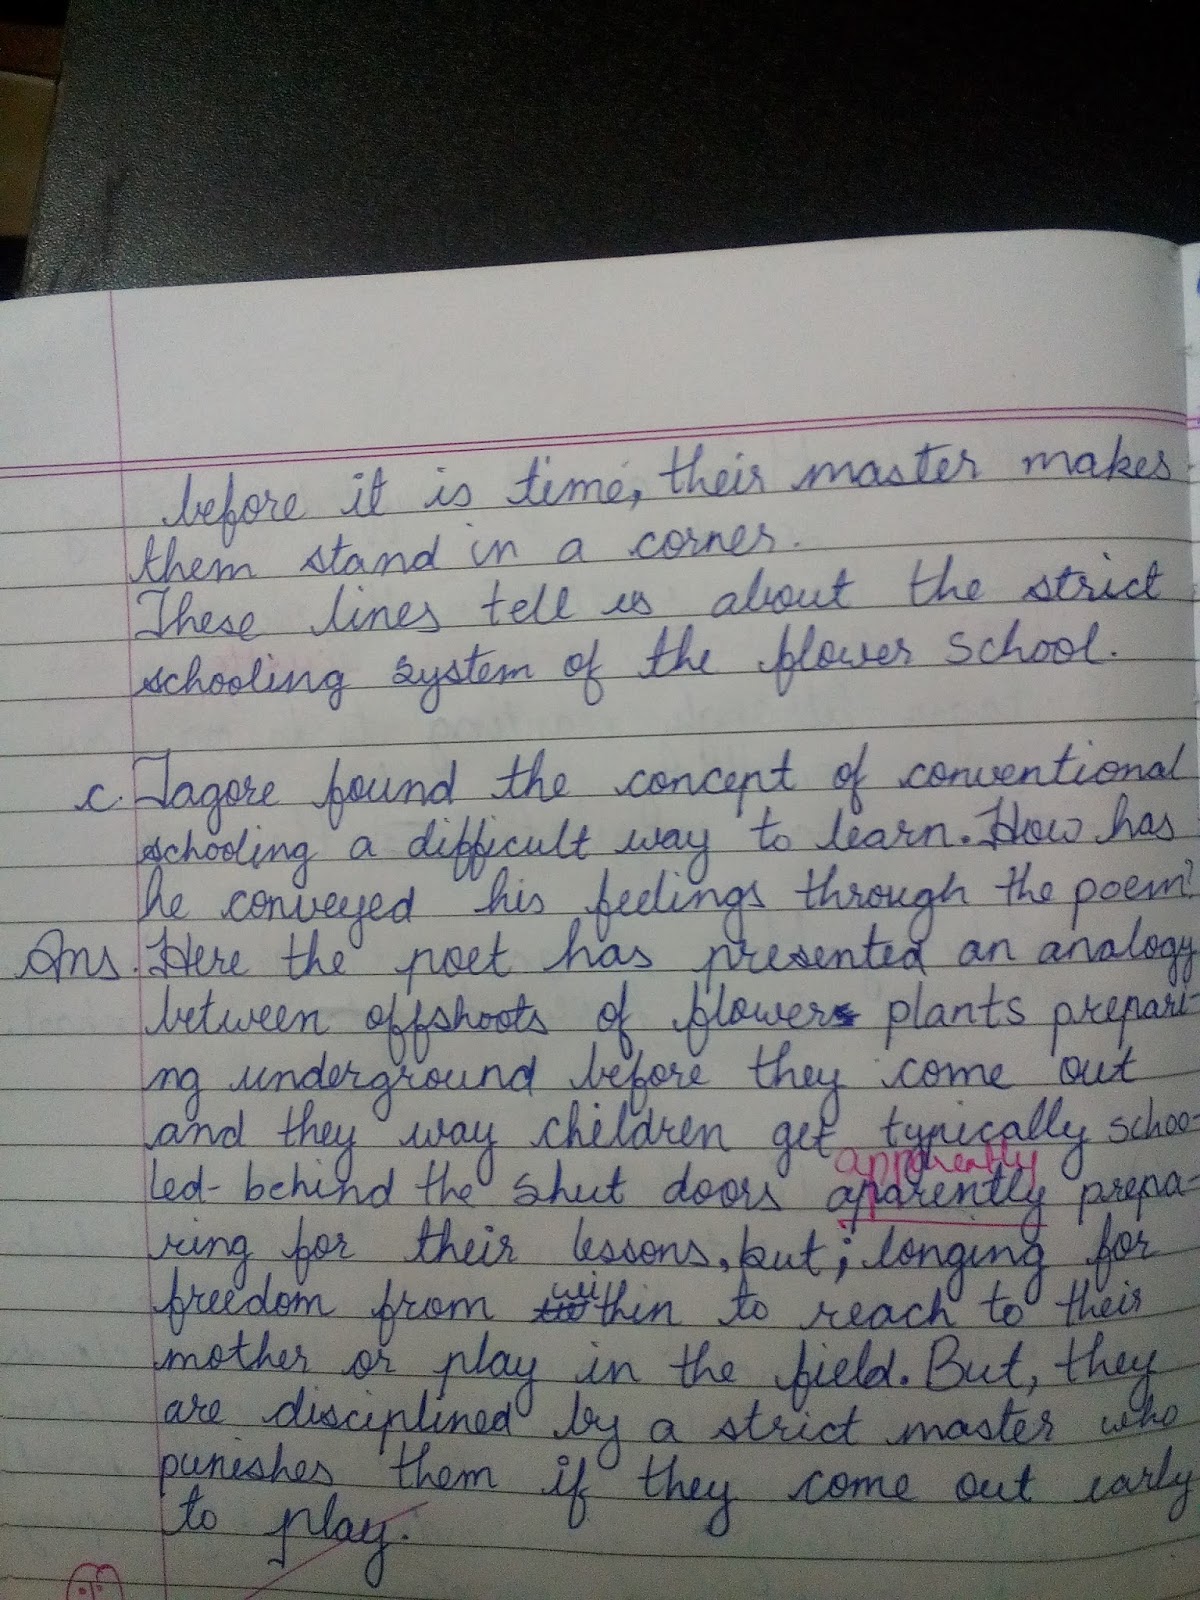 before it is time, their master makes
them stand in a corner.
These lines tell us about the strict
schooling system of the flower school.
c. Tagore found the concept of conventional
schooling a difficult way to learn. How has
he conveyed his feelings through the poem?
Ans. Here the poet has presented an analogy
between offshoots of flowers plants prepari-
ng underground before they come out
and they way children get typically schoo-
apparently
led- behind the shut doors aparently prepa-
ring for their lessons, but; longing for
freedom from within to reach to their
mother or play in the field. But, they
are disciplined by a strict master who
punishes them if they come out early
to play.